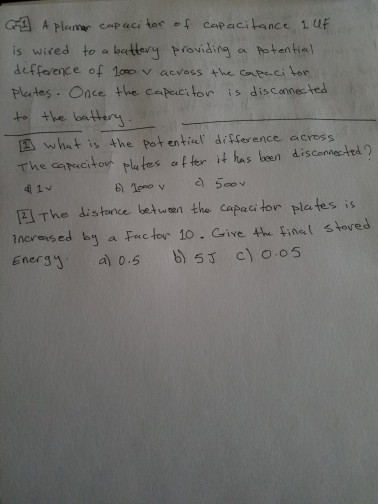 Q1] A planar capacitor of capacitance 1 UF
is wired to a battery providing a potential
difference of 1000 v across the capacitor
plates. Once the capacitor is disconnected
to the battery.
[1] what is the potential difference across
The capacitor plates after it has been disconnected?
a) 1v b) 1000 v c) 500v
[2] The distance between the capacitor plates is
increased by a factor 10. Give the final stored
Energy. a) 0.5 b) 5 J c) 0.05